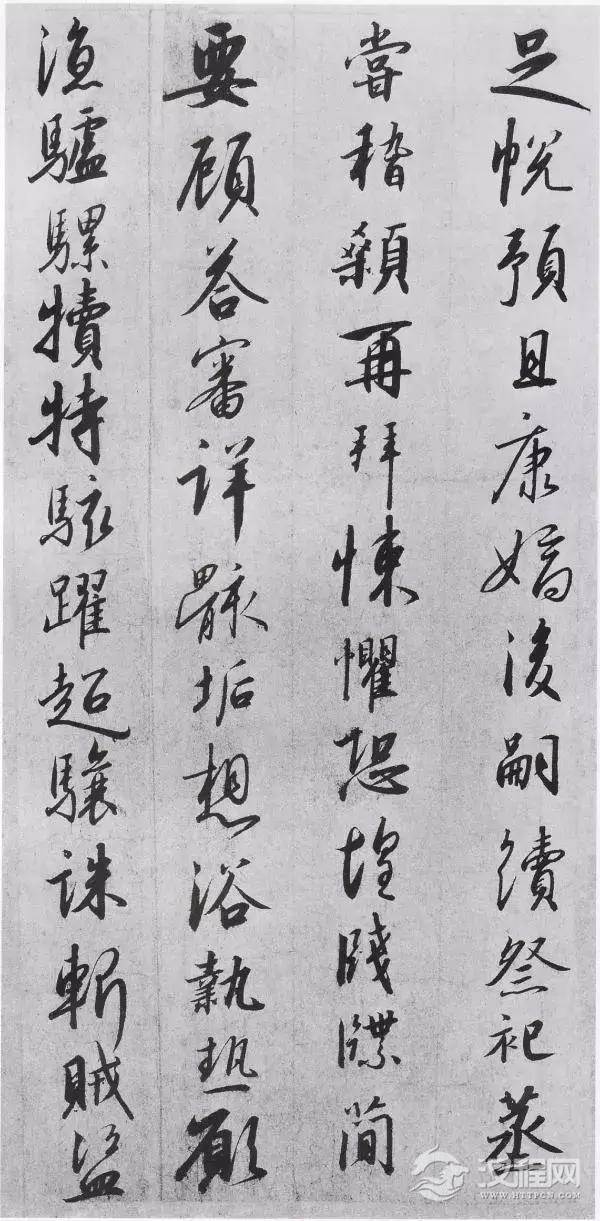 足悅預且康嫡後嗣續祭祀蒸
嘗稽顙再拜悚懼恐惶牋牒簡
要顧荅審詳骸垢想浴執熱願
涼驢騾犢特駭躍超驤誅斬賊盜
汉程网
WWW.HTTPCN.COM